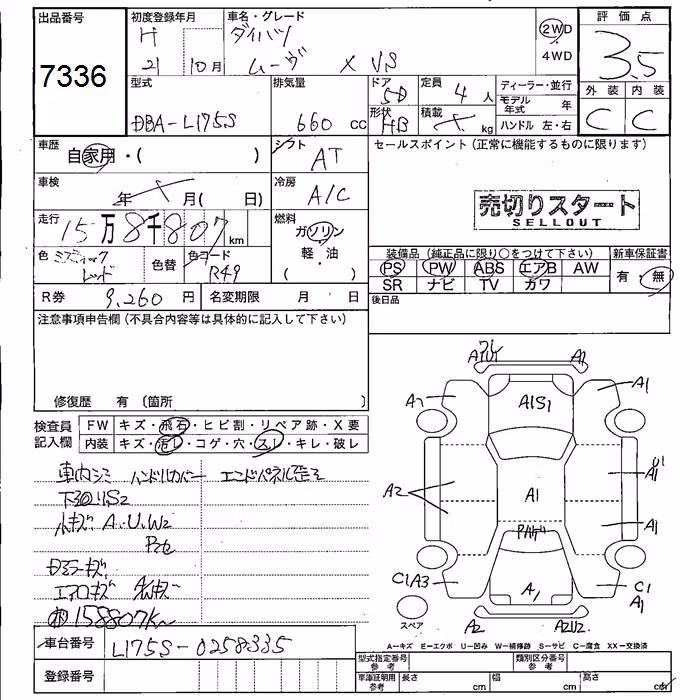 出品番号
7336
初度登録年月
H 21 10月
車名・グレード
ダイハツ
ムーヴ X VS
2WD
4WD
評価点
3.5
外装 内装
C C
型式
DBA-L175S
排気量
660 cc
ドア
5D
形状
HB
定員
4人
積載
kg
ディーラー・並行
モデル年式 年
ハンドル 左・右
車歴
自家用・( )
シフト
AT
セールスポイント(正常に機能するものに限ります)
車検
年 月( 日)
冷房
A/C
売切りスタート
SELLOUT
走行
15万8千807km
燃料
ガソリン
軽・油
( )
色
ミスティック
レッド
色替
色コード
R49
装備品(純正品に限り○をつけて下さい)
PS PW ABS エアB AW
SR ナビ TV カワ
新車保証書
有・無
R券 9,260 円
名変期限 月 日
後日品
注意事項申告欄(不具合内容等は具体的に記入して下さい)
修復歴 有 〔箇所 〕
検査員記入欄
FW キズ・飛石・ヒビ割・リペア跡・X要
内装 キズ・汚レ・コゲ・穴・スレ・キレ・破レ
車内シミ ハンドルカバー
下回りS2
A.U.W2
エアロキズ
158807K
車台番号 L175S-0258335
登録番号
A1
A1
A1S1
A1
A2
A1
A1
C1A3
A1
C1
A1
A2
スペア
A-キズ E-エクボ U-凹み W-補修跡 S-サビ C-腐食 XX-交換済
型式指定番号 参考
類別区分番号 参考
車庫証明用 参考
長さ cm
幅 cm
高さ cm